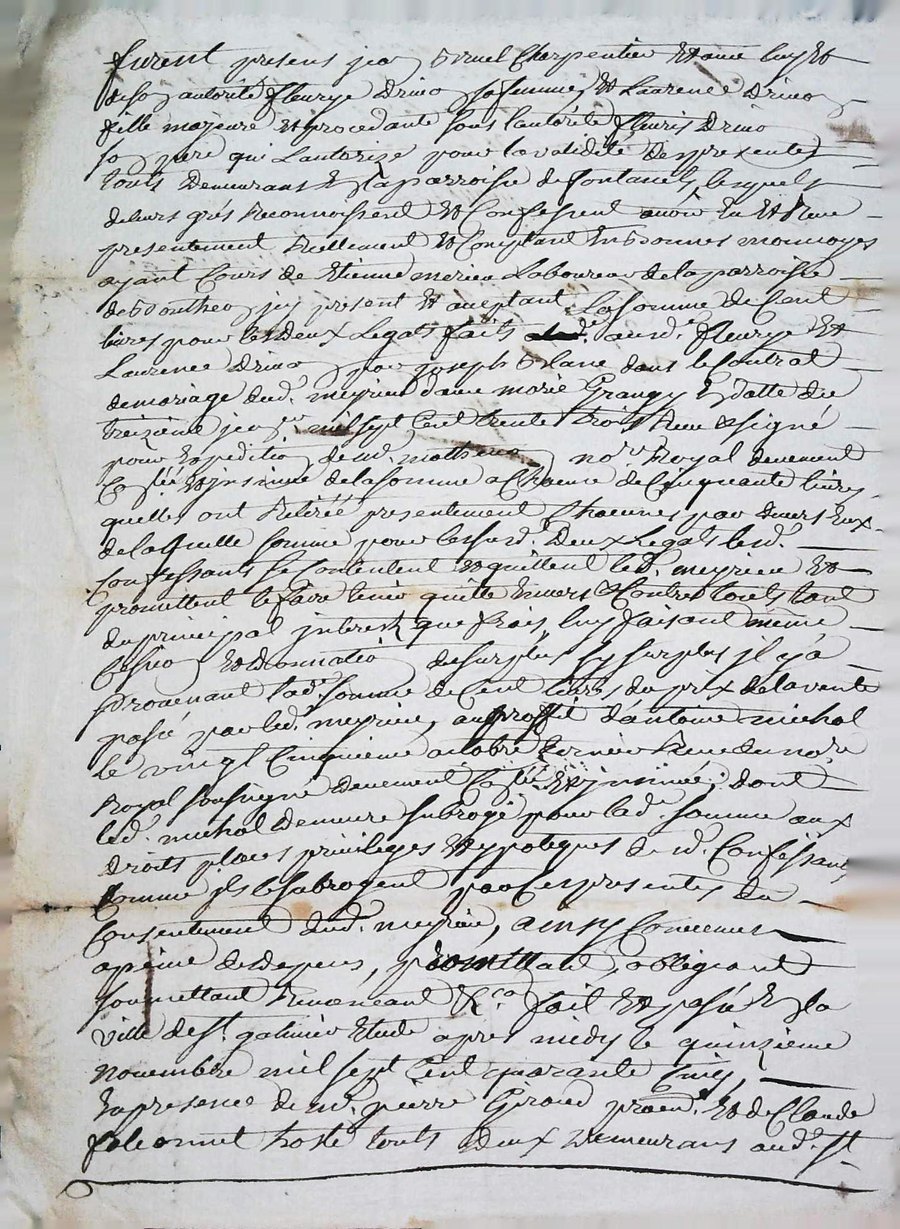 furent presens jean Bruel Charpentier et avec luy et
de son autorité fleurye Drivon sa femme, et Laurence Drivon
fille majeure et procedante sous l'autorité fleuris Drivon
son pere qui Lautorize pour la validité des presentes
touts Demeurans en la parroisse de fontanes, lesquels
de leurs grés Reconnoissent et Confessent avoir eu et Receu
presentement Reellement et Comptant en bonnes monnoyes
ayant Cours de Etienne merieu Laboureur de la parroisse
de Bontheon jcy present et aceptant La somme de Cent
livres pour les deux Legats faits aud. fleurye et
Laurence Drivon par joseph Blanc dans le Contrat
de mariage dud. meyrieu d'avec marie Grangy en datte du
treizième janer mil sept Cent trente trois Receu et signé
pour Expedition de me. no.re Royal deuement
Collée et jnsinué de la somme a Chacune de Cinquante livres
quelles ont Retirée presentement Chacunes par devers eux
de laquelle somme pour lesusd. Deux Legats lesd.
Confessants se Contentent et quittent led. meyrieu et
promettent le faire tenir quitte Envers et Contre touts tant
du principal jnterest que frais, luy faisant même
Cession et donnation du surplus sy surplus jl y a
Provenant lad. somme de Cent livres du prix de la vente
passé par led. meyrieu, au proffit d'antoine michol
le vingt Cinquieme octobre dernier Receu du no.re
Royal soussigné deuement Collée et jnsinuée; dont
led. michol Demeure subrogé pour lad. somme aux
droits places privileges et ypoteques desd. Confessants
Comme jls le subrogent par Ces presentes du
Consentement dud. meyrieu, ainsy Convenus
a peine de depens, promettant, obligeant
soumettant Renonceant &Ca. fait et passé en la
ville de St. galmier Etude apres midy le quinzieme
novembre mil sept Cent quarante
En presence de me. pierre Giroud procur. et de Claude
hoste touts deux Demeurans aud. St.